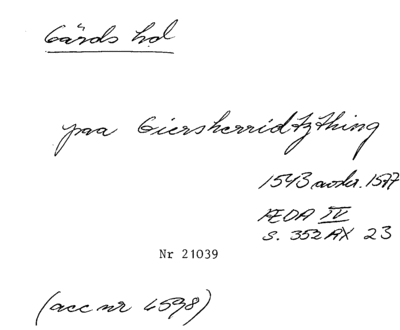 Gärds hd
paa Giersherridtzthing
1543 avskr. 1577
ÆDA IV
s. 352 AX 23
Nr 21039
(acc nr 4598)